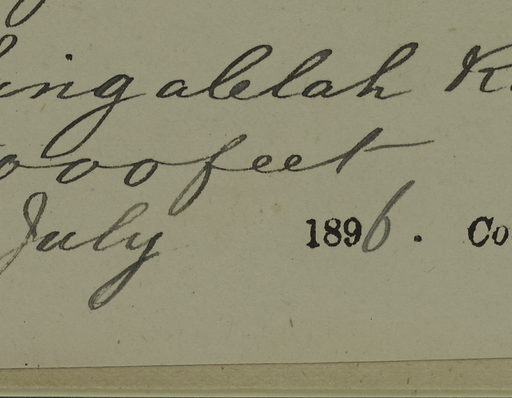 ingalelah K
000 feet
July 1896. Co